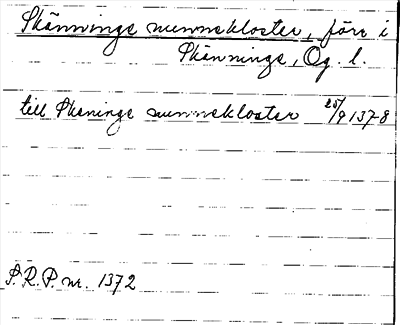 Skännings nunnekloster, förr i
Skänninge, Ög. l.
till Skenings nunnekloster 25/9 1378
S.R.P. nr. 1372